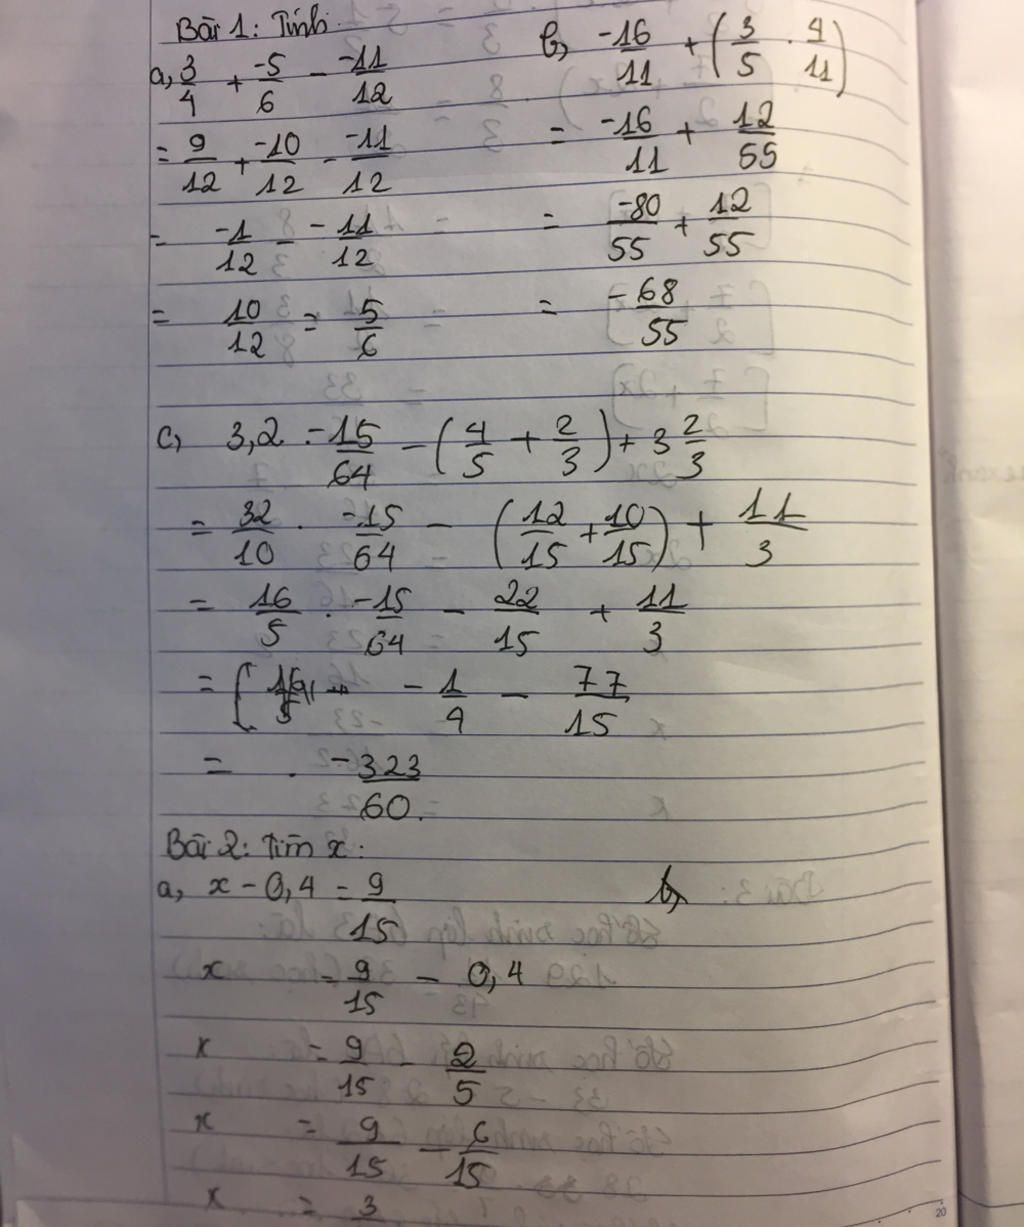 Bài 1: Tính.
a, 3/4 + -5/6 - -11/12
= 9/12 + -10/12 - -11/12
= -1/12 - -11/12
= 10/12 = 5/6
b, -16/11 + (3/5 . 4/11)
= -16/11 + 12/55
= -80/55 + 12/55
= -68/55
c, 3,2 . -15/64 - (4/5 + 2/3) + 3 2/3
= 32/10 . -15/64 - (12/15 + 10/15) + 11/3
= 16/5 . -15/64 - 22/15 + 11/3
= [ -1/4 - 77/15
= . -323/60.
Bài 2: Tìm x:
a, x - 0,4 = 9/15
x = 9/15 - 0,4
x = 9/15 - 2/5
x = 9/15 - 6/15
x = 3
b,
20